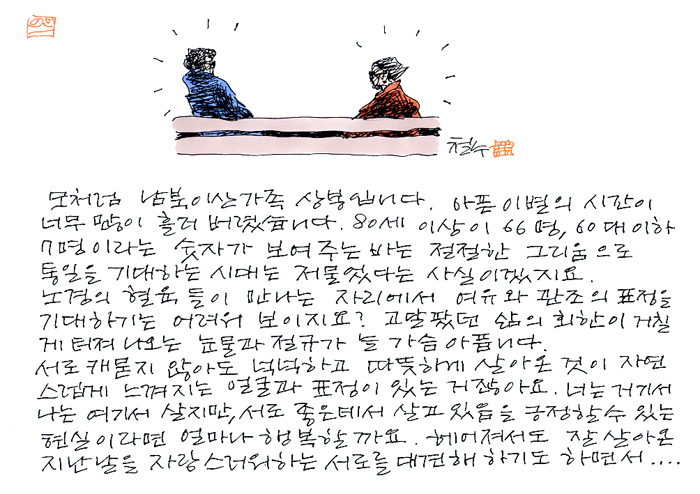 철수
모처럼 남북이산가족 상봉입니다. 아픈 이별의 시간이
너무 많이 흘러 버렸습니다. 80세 이상이 66명, 60대이하
7명이라는 숫자가 보여주는 바는 절절한 그리움으로
통일을 기대하는 시대는 저물었다는 사실이겠지요.
노경의 혈육 들이 만나는 자리에서 여유와 관조의 표정을
기대하기는 어려워 보이지요? 고달팠던 삶의 회한이 거칠
게 터져 나오는 눈물과 절규가 늘 가슴 아픕니다.
서로 캐묻지 않아도 넉넉하고 따뜻하게 살아온 것이 자연
스럽게 느껴지는 얼굴과 표정이 있는 거잖아요. 너는 거기서
나는 여기서 살지만, 서로 좋은데서 살고 있음을 긍정할수 있는
현실이라면 얼마나 행복할까요. 헤어져서도 잘 살아온
지난날을 자랑스러워하는 서로를 대견해 하기도 하면서....